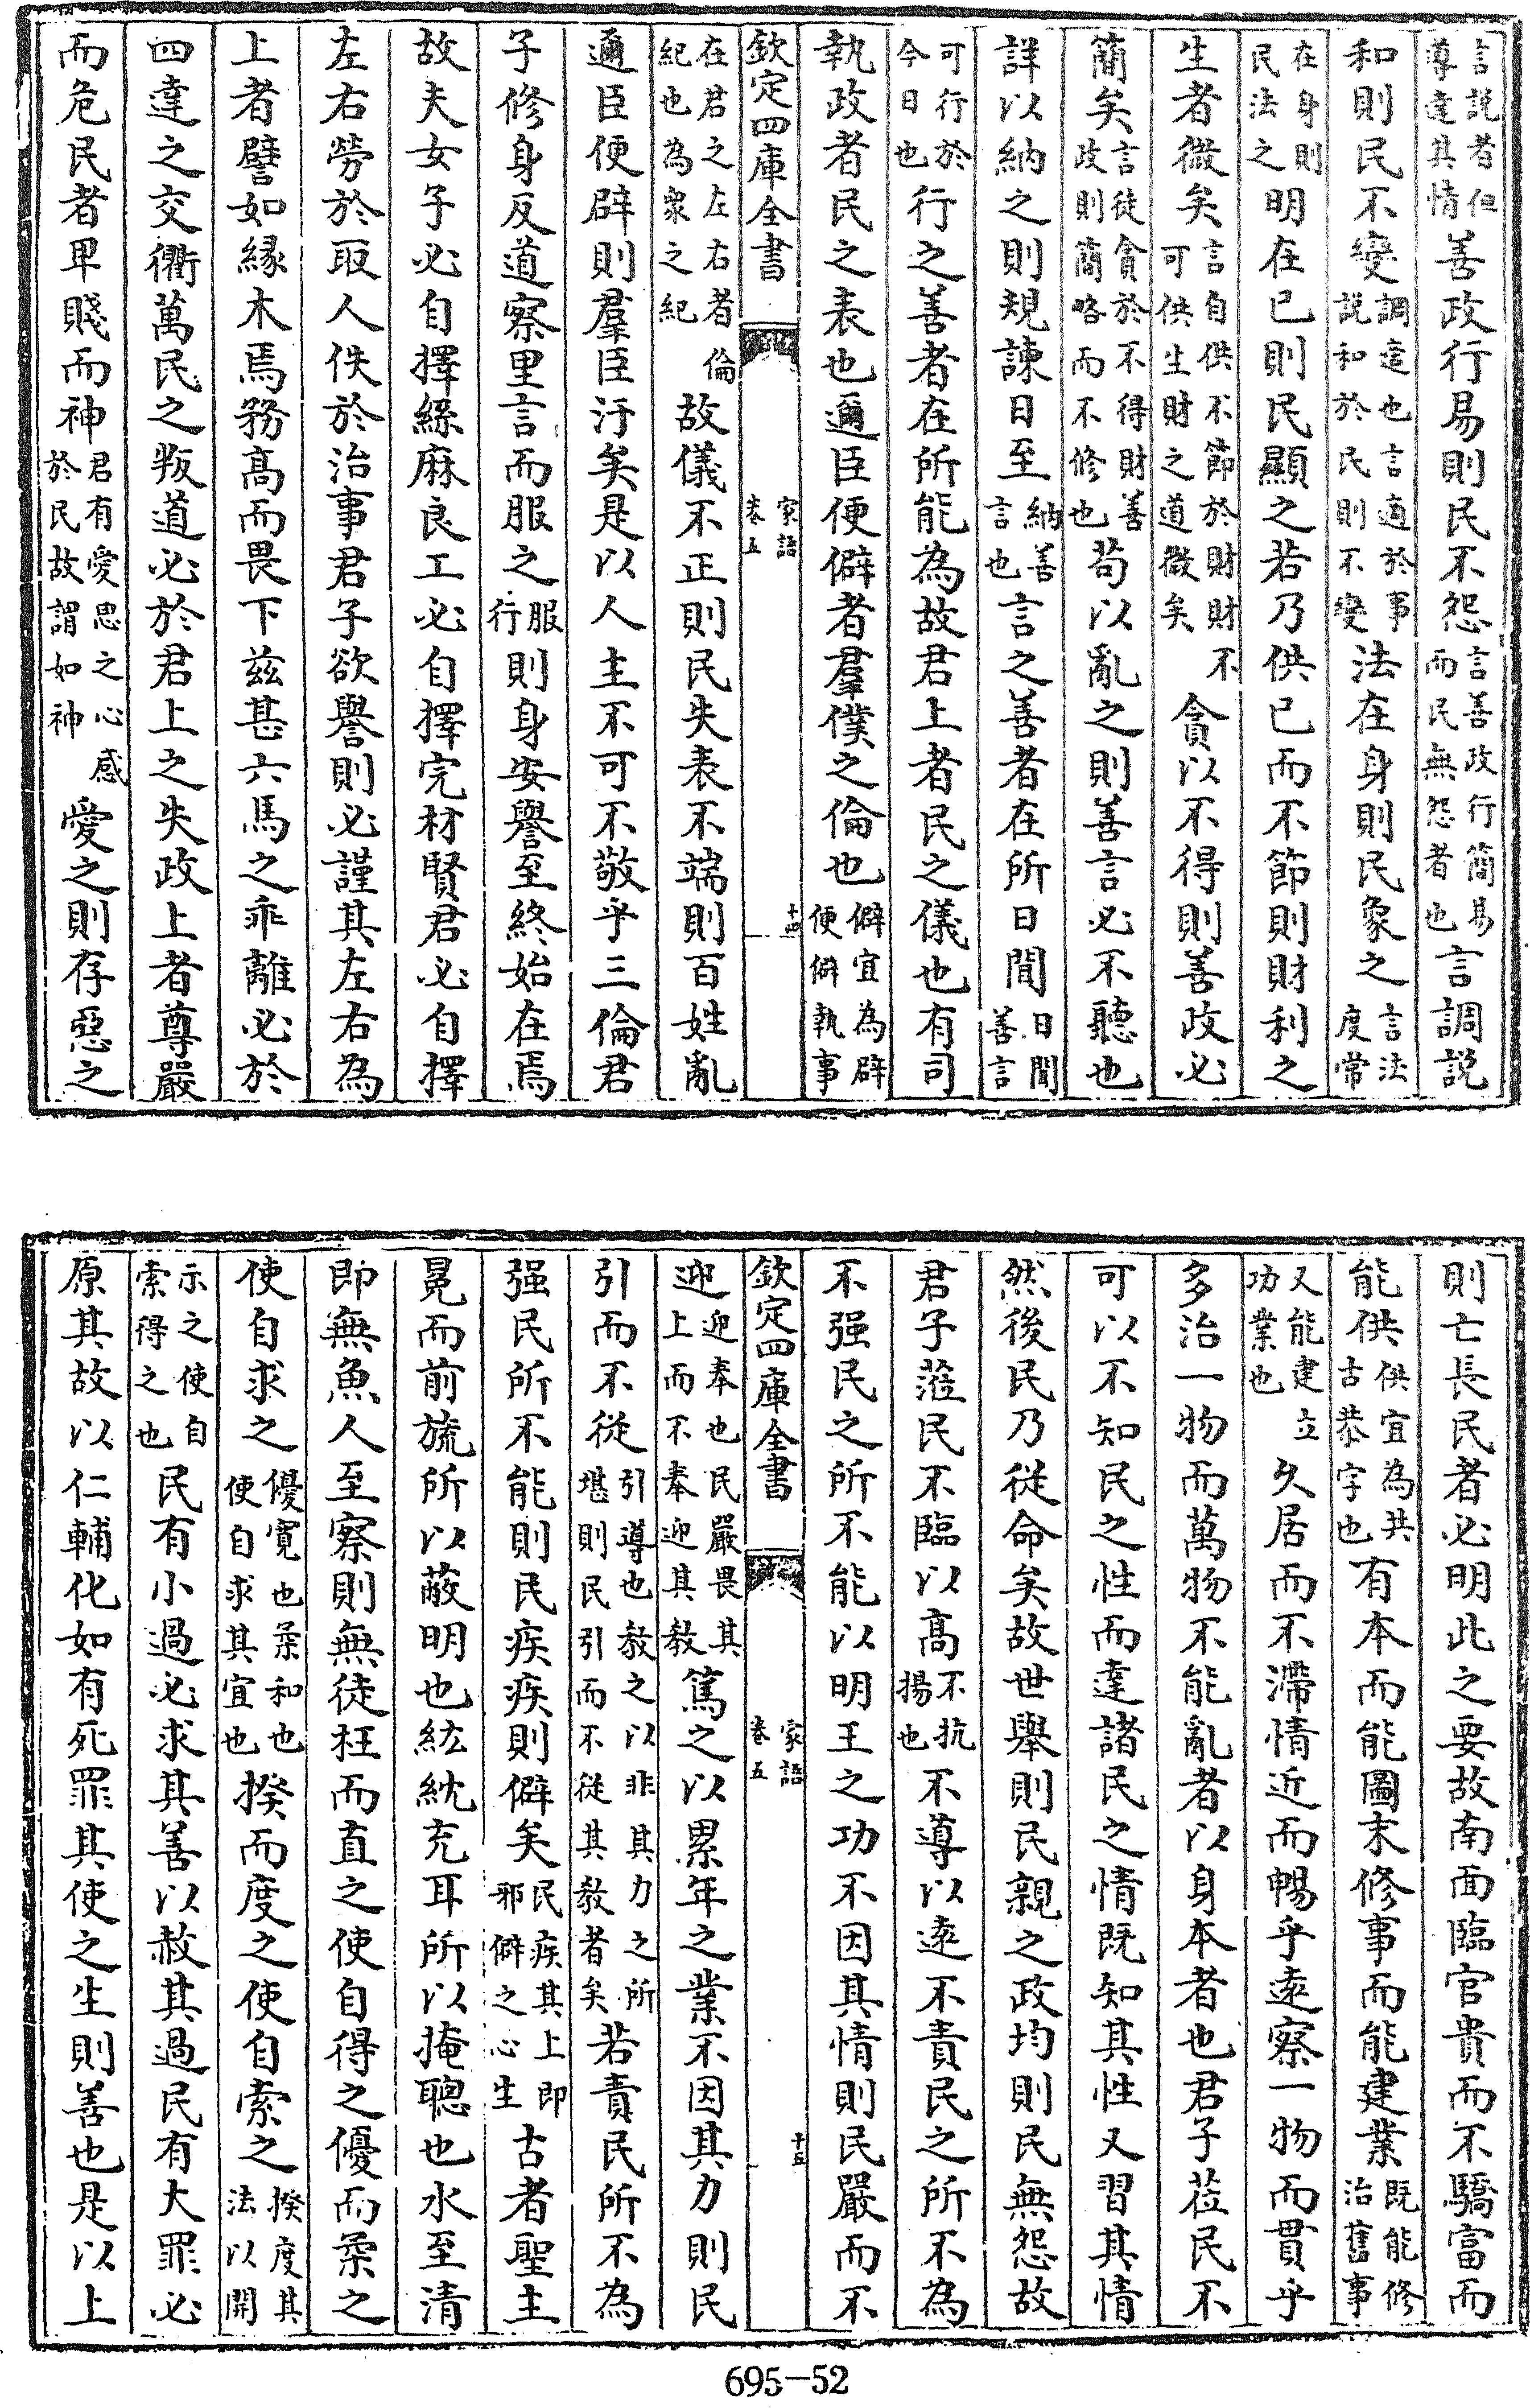 言説者但導達其情善政行易則民不怨言善政行簡易而民無怨者也言調説
和則民不變調適也言適於事説和於民則不變法在身則民象之言法度常
在身則民法之明在己則民顯之若乃供己而不節則財利之
生者微矣言自供不節於財財可供生財之道微矣不貪以不得則善政必
簡矣言徒貪於不得財善政則簡略而不修也茍以亂之則善言必不聽也
詳以納之則規諫日至納善言也言之善者在所日聞日聞善言
可行於今日也行之善者在所能為故君上者民之儀也有司
執政者民之表也邇臣便僻者羣僕之倫也僻宜為辟便僻執事
欽定四庫全書 家語卷五 十四
在君之左右者倫紀也為衆之紀故儀不正則民失表不端則百姓亂
邇臣便辟則羣臣汙矣是以人主不可不敬乎三倫君
子修身反道察里言而服之服行則身安譽至終始在焉
故夫女子必自擇絲麻良工必自擇完材賢君必自擇
左右勞於取人佚於治事君子欲譽則必謹其左右為
上者譬如縁木焉務髙而畏下兹甚六馬之乖離必於
四達之交衢萬民之叛道必於君上之失政上者尊嚴
而危民者卑賤而神君有愛思之心感於民故謂如神愛之則存惡之
則亡長民者必明此之要故南面臨官貴而不驕富而
能供供宜為共古恭字也有本而能圖末修事而能建業既能修治舊事
又能建立功業也久居而不滯情近而暢乎逺察一物而貫乎
多治一物而萬物不能亂者以身本者也君子莅民不
可以不知民之性而達諸民之情既知其性又習其情
然後民乃從命矣故世舉則民親之政均則民無怨故
君子蒞民不臨以髙不抗揚也不導以逺不責民之所不為
不强民之所不能以明王之功不因其情則民嚴而不
欽定四庫全書 家語卷五 十五
迎迎奉也民嚴畏其上而不奉迎其教篤之以累年之業不因其力則民
引而不從引導也教之以非其力之所堪則民引而不從其教者矣若責民所不為
强民所不能則民疾疾則僻矣民疾其上即邪僻之心生古者聖主
冕而前旒所以蔽明也紘紞充耳所以掩聰也水至清
即無魚人至察則無徒枉而直之使自得之優而柔之
使自求之優寛也柔和也使自求其宜也揆而度之使自索之揆度其法以開
示之使自索得之也民有小過必求其善以赦其過民有大罪必
原其故以仁輔化如有死罪其使之生則善也是以上
695-52